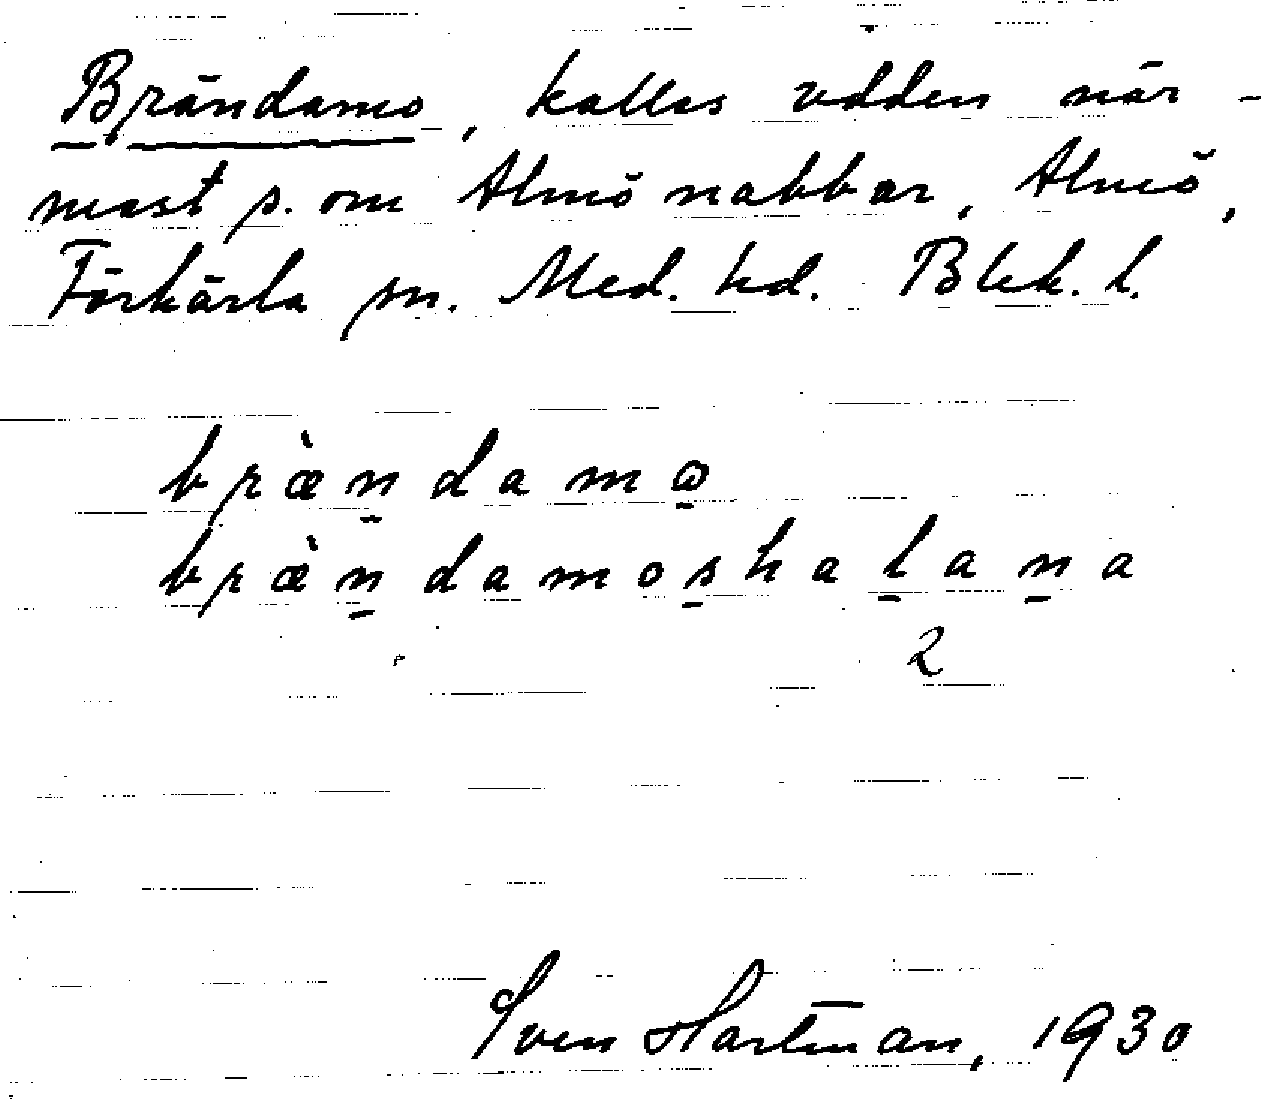 Brändamo, kallas udden när-
mast s. om Almö nabbar, Almö,
Förkärla sn. Med. hd. Blek. l.
br æ̀ n̠ d a m o̠
br æ̀ n̠ d a m o s̠ h a l̠ a n̠ a
2
Sven Hartman, 1930